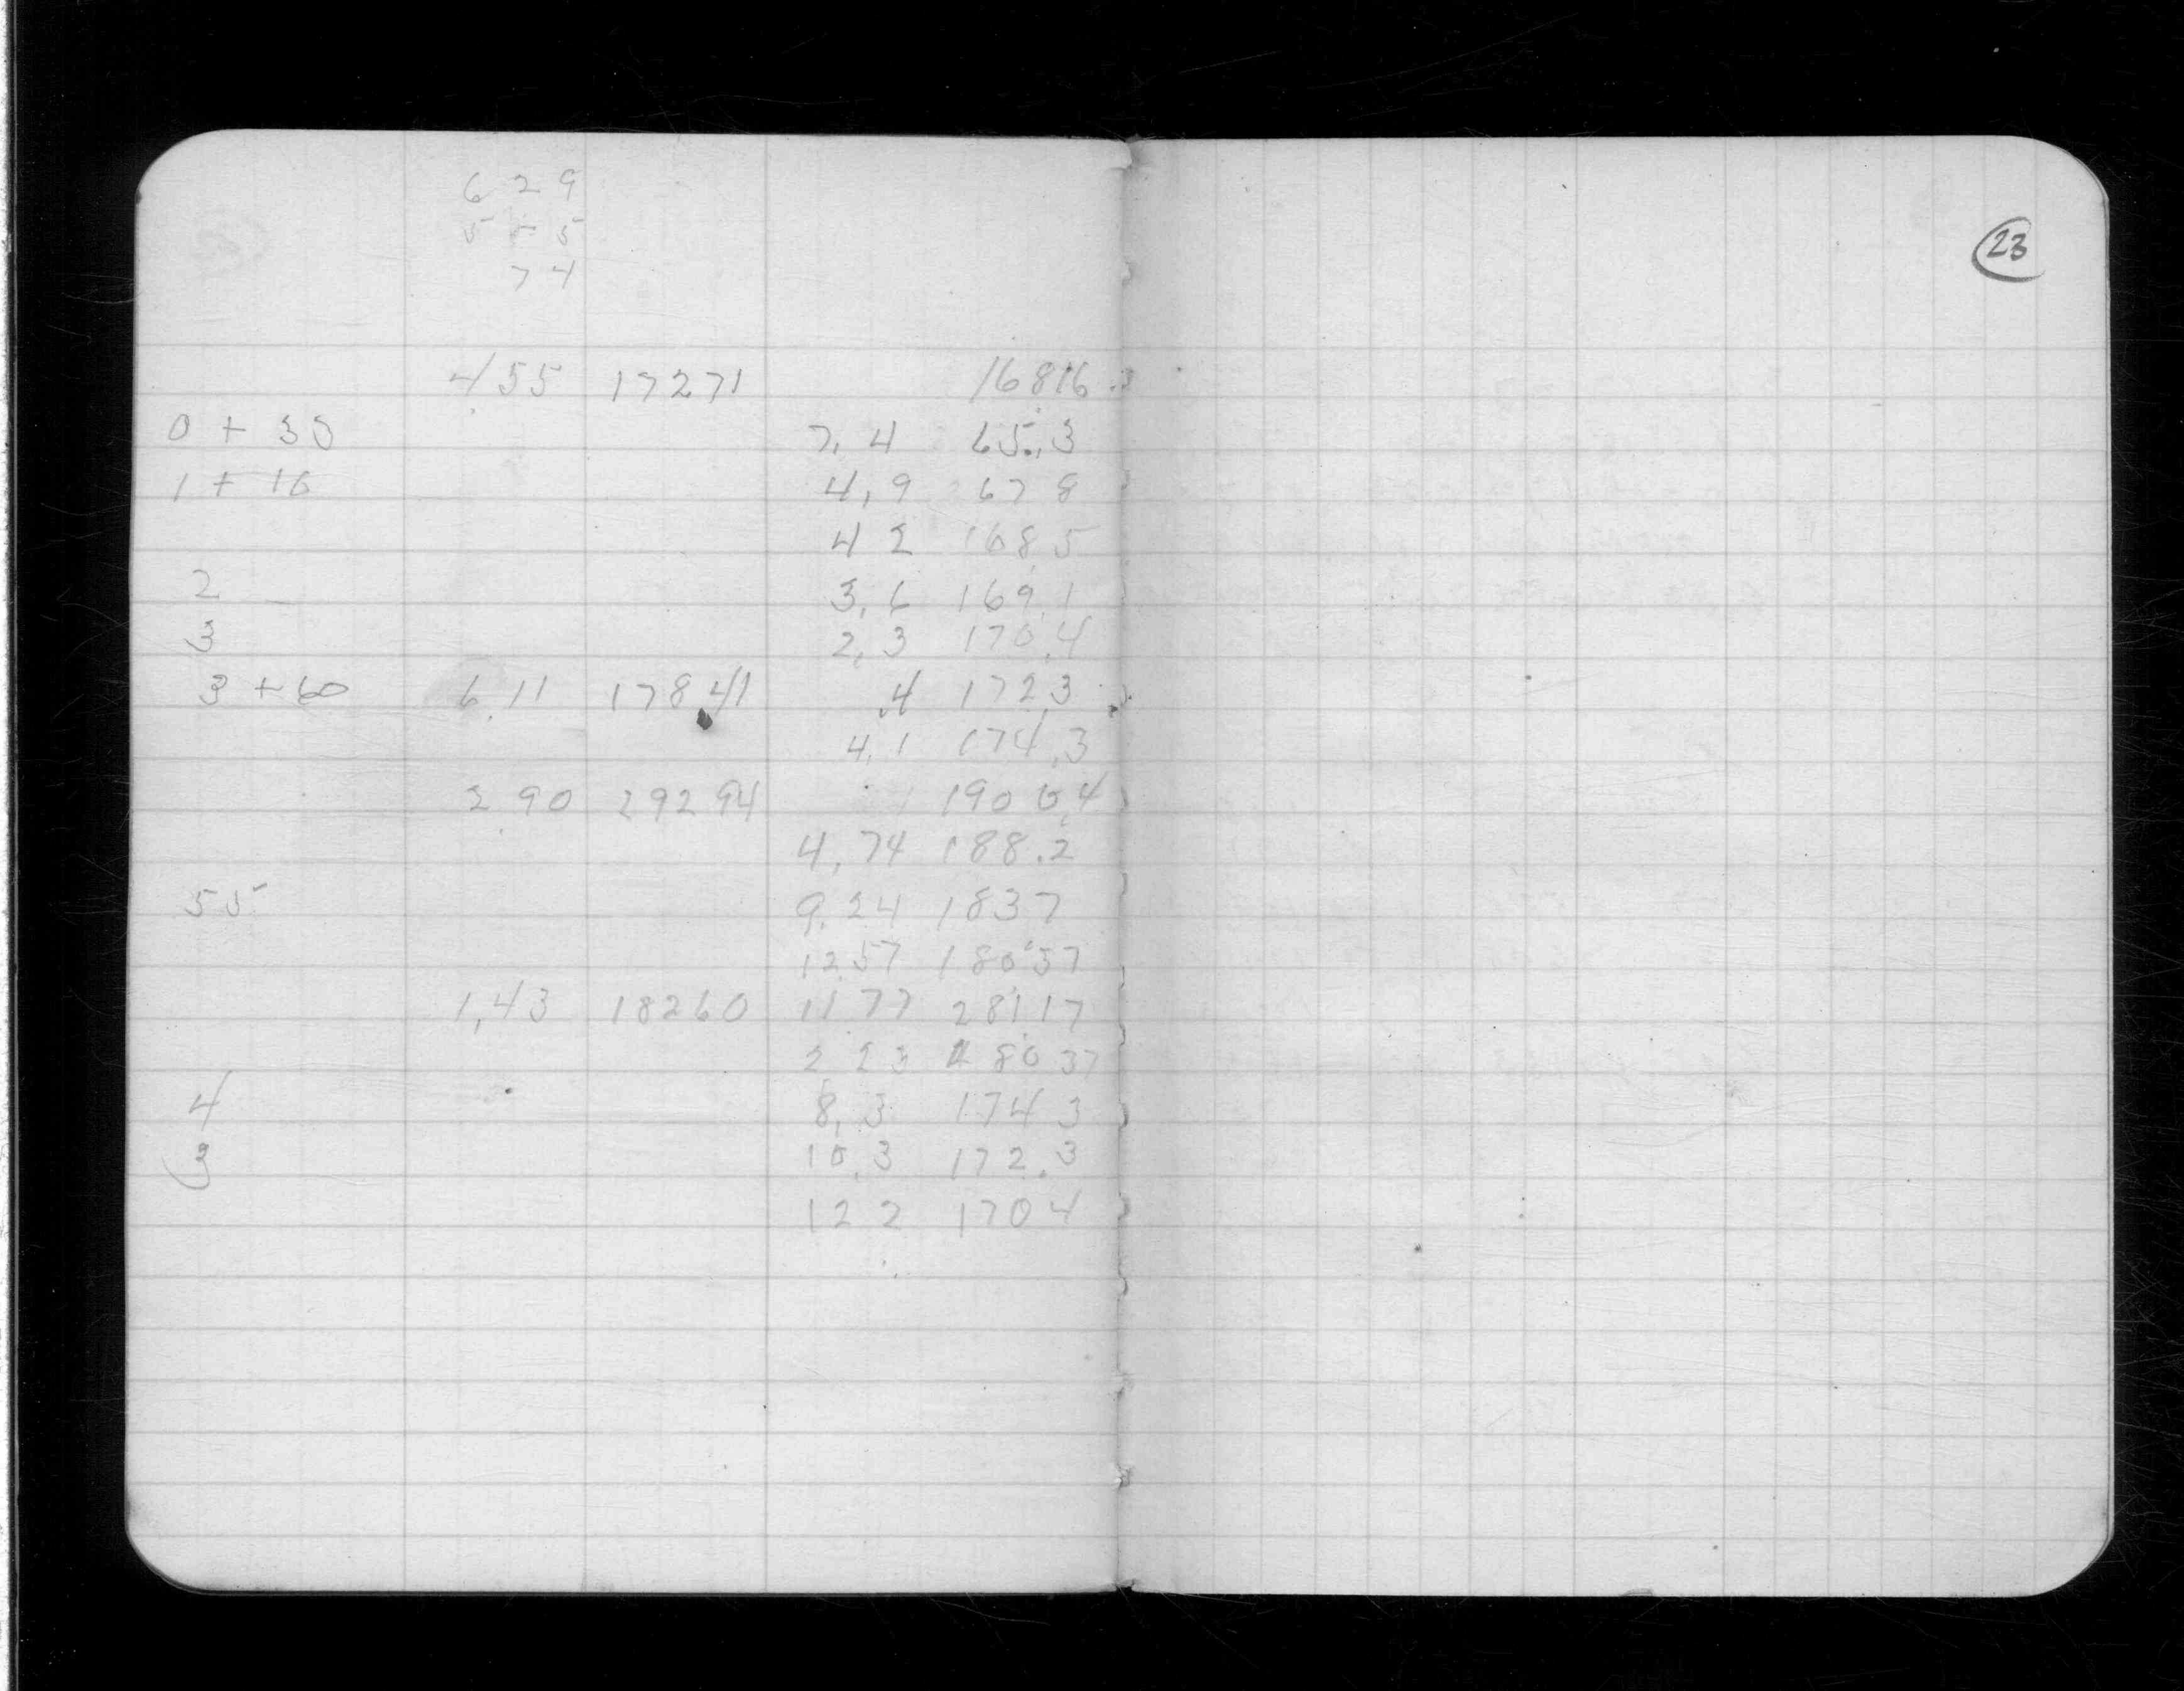 6 2 9
5 5 5
7 4
4 55 172 71 168 16
0 + 35 7, 4 65.,3
1 + 16 4, 9 67 8
4 2 168 5
2 3, 6 169, 1
3 2, 3 170, 4
3 + 60 6, 11 178, 41 , 4 172, 3
4, 1 174, 3
2 90 292 94 190 0, 4
4, 74 188. 2
55 9, 24 183 7
12, 57 180 37
1, 43 182 60 11 77 281 17
2 23 180 37
4 8, 3 174 3
3 10, 3 172, 3
12 2 170 4
23